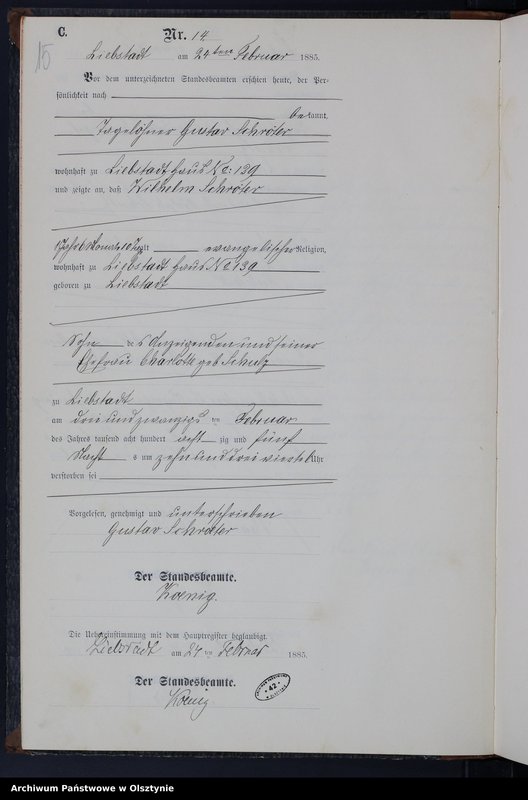 C.
Nr. 14.
15
Liebstadt am 24ten Februar 1885.
Vor dem unterzeichneten Standesbeamten erschien heute, der Per-
sönlichkeit nach
bekannt,
Tagelöhner Gustav Schröter
wohnhaft zu Liebstadt Haus No: 139
und zeigte an, daß Wilhelm Schröter
1 Jahr 6 Monate 10 Tage alt evangelischer Religion,
wohnhaft zu Liebstadt Haus No 139
geboren zu Liebstadt
Sohn des Anzeigenden und seiner
Ehefrau Charlotte geb Schulz
zu Liebstadt
am drei und zwanzigsten Februar
des Jahres tausend acht hundert achtzig und fünf
Nachts um zehn und drei viertel Uhr
verstorben sei
Vorgelesen, genehmigt und unterschrieben
Gustav Schröter
Der Standesbeamte.
Koenig.
Die Uebereinstimmung mit dem Hauptregister beglaubigt.
Liebstadt am 24ten Februar 1885.
Der Standesbeamte.
Koenig
42
Archiwum Państwowe w Olsztynie